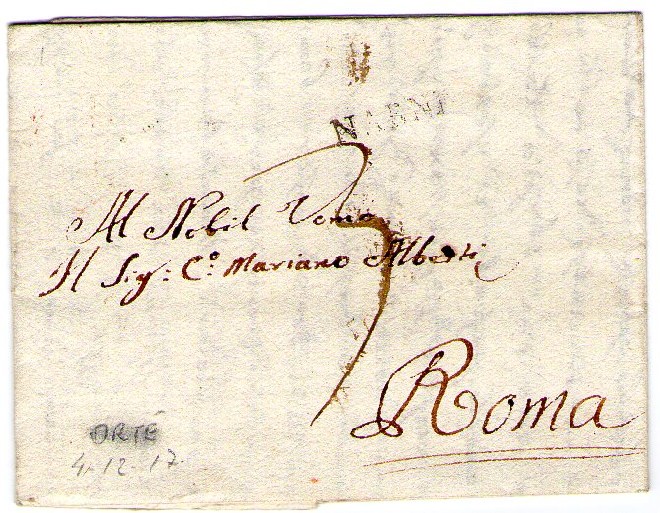 NARNI
Al Nobil Uomo
Il Sig.: C.º Mariano Alberti
3
Roma
ORTE
4-12-17